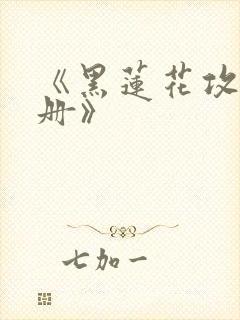 《黑蓮花攻
册》
七加一